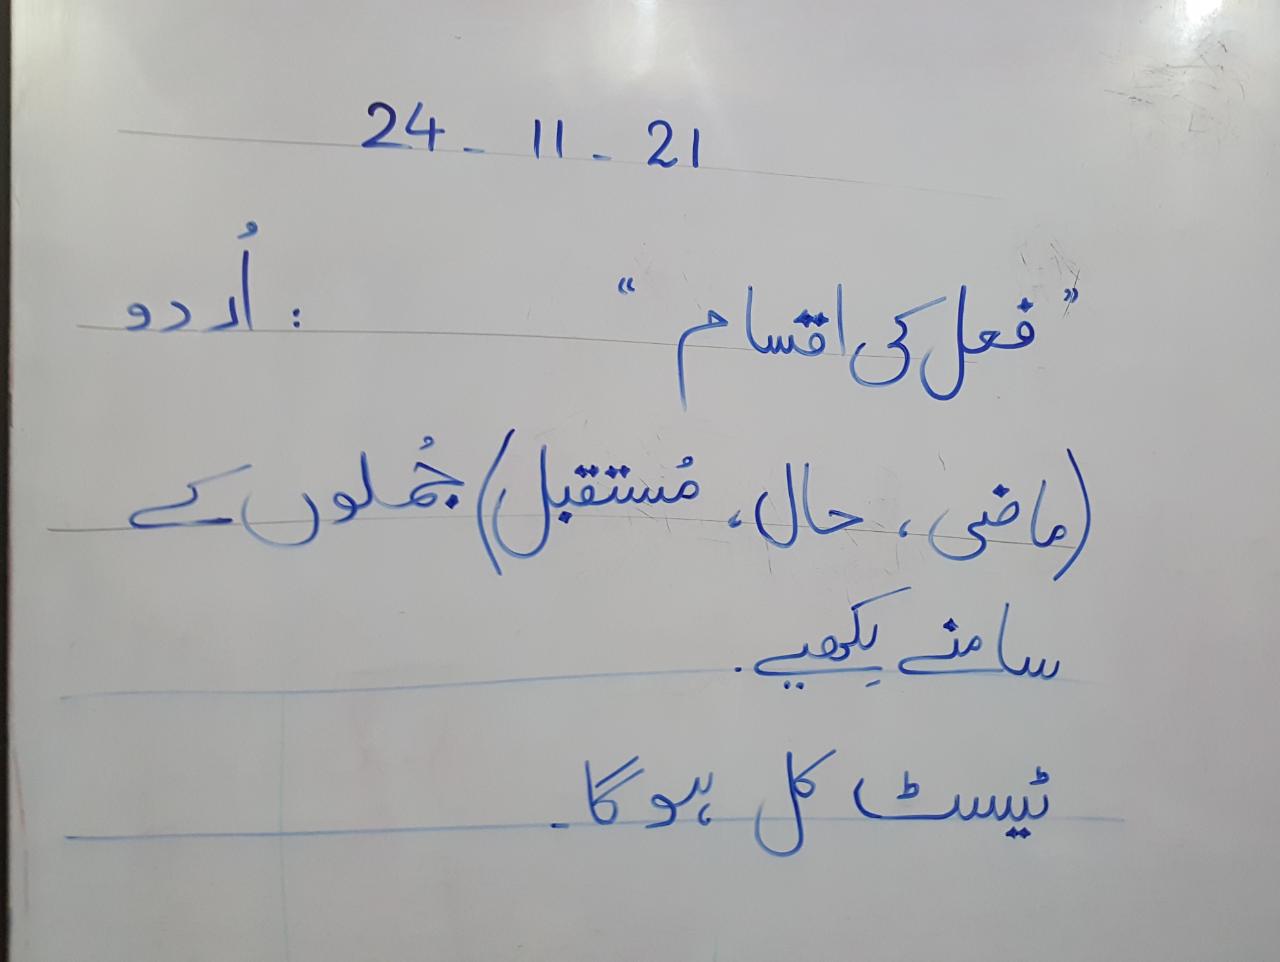 24 - 11 - 21
"فعل کی اقسام" : اُردو
(ماضی، حال، مُستقبل) جُملوں کے
سامنے لِکھیے.
ٹیسٹ کل ہو گا.